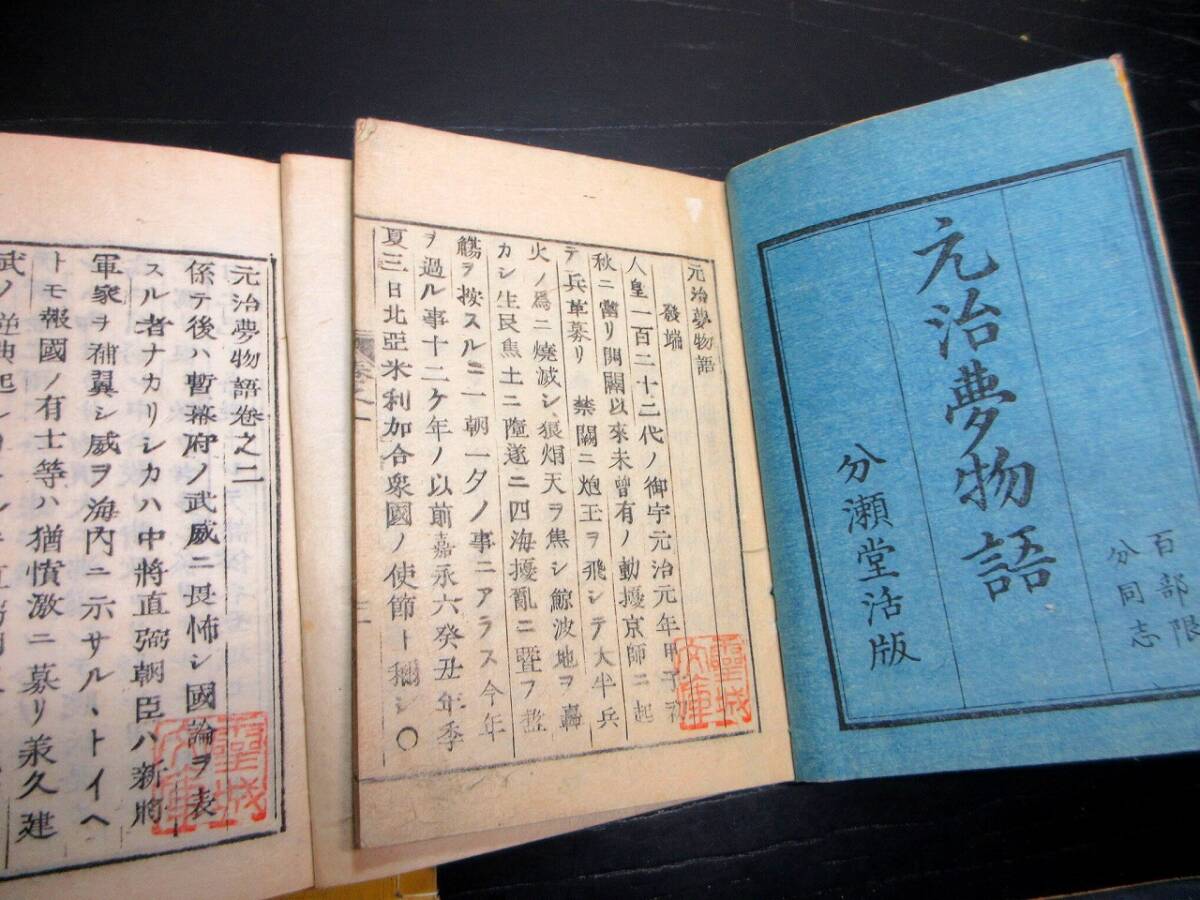 百部限
分同志
元治夢物語
分瀬堂活版
元治夢物語
發端
人皇一百二十二代ノ御宇元治元年甲子初
秋ニ當リ開闢以來未曾有ノ動擾京師ニ起
テ兵革募リ 禁闕ニ炮玉ヲ飛シテ大半兵
火ノ爲ニ燒滅シ狼烟天ヲ焦シ鯨波地ヲ轟
カシ生民焦土ニ墮遂ニ四海擾亂ニ曁フ盖
觴ヲ按スルニ一朝一夕ノ事ニアラス今年
ヲ過ル事十二ケ年ノ以前嘉永六癸丑年季
夏三日北亞米利加合衆國ノ使節ト稱シ〇
聖城文庫
元治夢物語卷之二
係テ後ハ暫幕府ノ武威ニ畏怖シ國論ヲ表
スル者ナカリシカハ中將直弼朝臣ハ新將
軍家ヲ補翼シ威ヲ海內ニ示サル、トイヘ
トモ報國ノ有士等ハ猶憤激ニ募リ兼久建
武ノ
聖城文庫